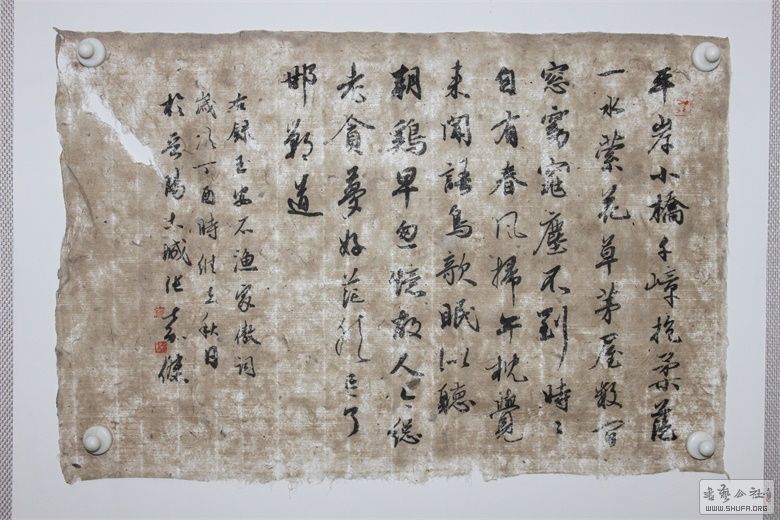 平岸小橋千嶂抱柔藍
一水縈花草茅屋數間
窓窈窕塵不到時〻
自有春風掃午枕覺
來聞語鳥欹眠似聽
朝鷄早忽憶故人今總
老貪夢好茫然忘了
邯鄲道
右錄王安石漁家傲詞
歲次丁酉時維立秋日
於岳陽古城張志傑
书艺公社
WWW.SHUFA.ORG